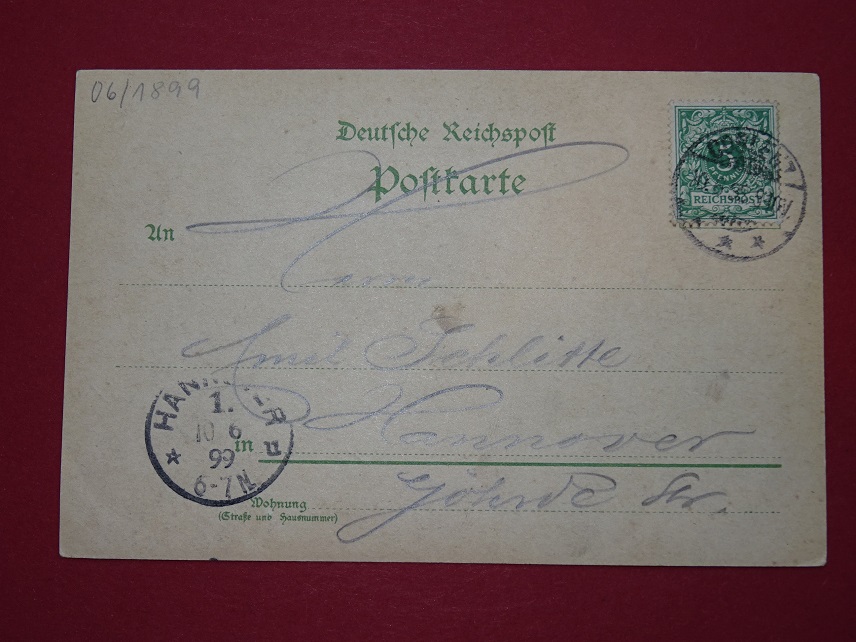 06/1899
Deutsche Reichspost
Postkarte
5
REICHSPOST
An
Herrn
Emil Schlitte
in Hannover
Wohnung
(Straße und Hausnummer)
Göhrde Str.
1.
10 6
99
6-7N.